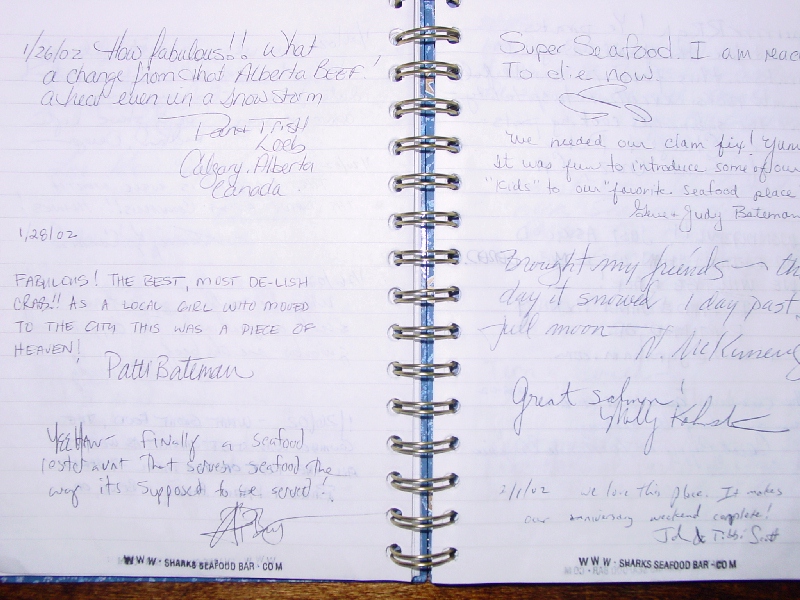 1/26/02 How fabulous!! What
a change from that Alberta BEEF!
a treat even in a snow storm
Loeb
Calgary, Alberta
Canada
1/28/02
FABULOUS! THE BEST, MOST DE-LISH
CRAB!! AS A LOCAL GIRL WHO MOVED
TO THE CITY THIS WAS A PIECE OF
HEAVEN!
Patti Bateman
YeeHaw- Finally a seafood
restaurant that serves seafood the
way it's supposed to be served!
WWW.SHARKS SEAFOOD BAR.COM
Super Seafood. I am
To die now.
We needed our clam fix! Yum
It was fun to introduce some of our
"kids" to our "favorite" seafood place
& Judy Bateman
Brought my friends — the
day it snowed 1 day past
full moon
Great salmon!
2/1/02 We love this place. It makes
our anniversary weekend complete!
Scott
WWW.SHARKS SEAFOOD BAR.COM